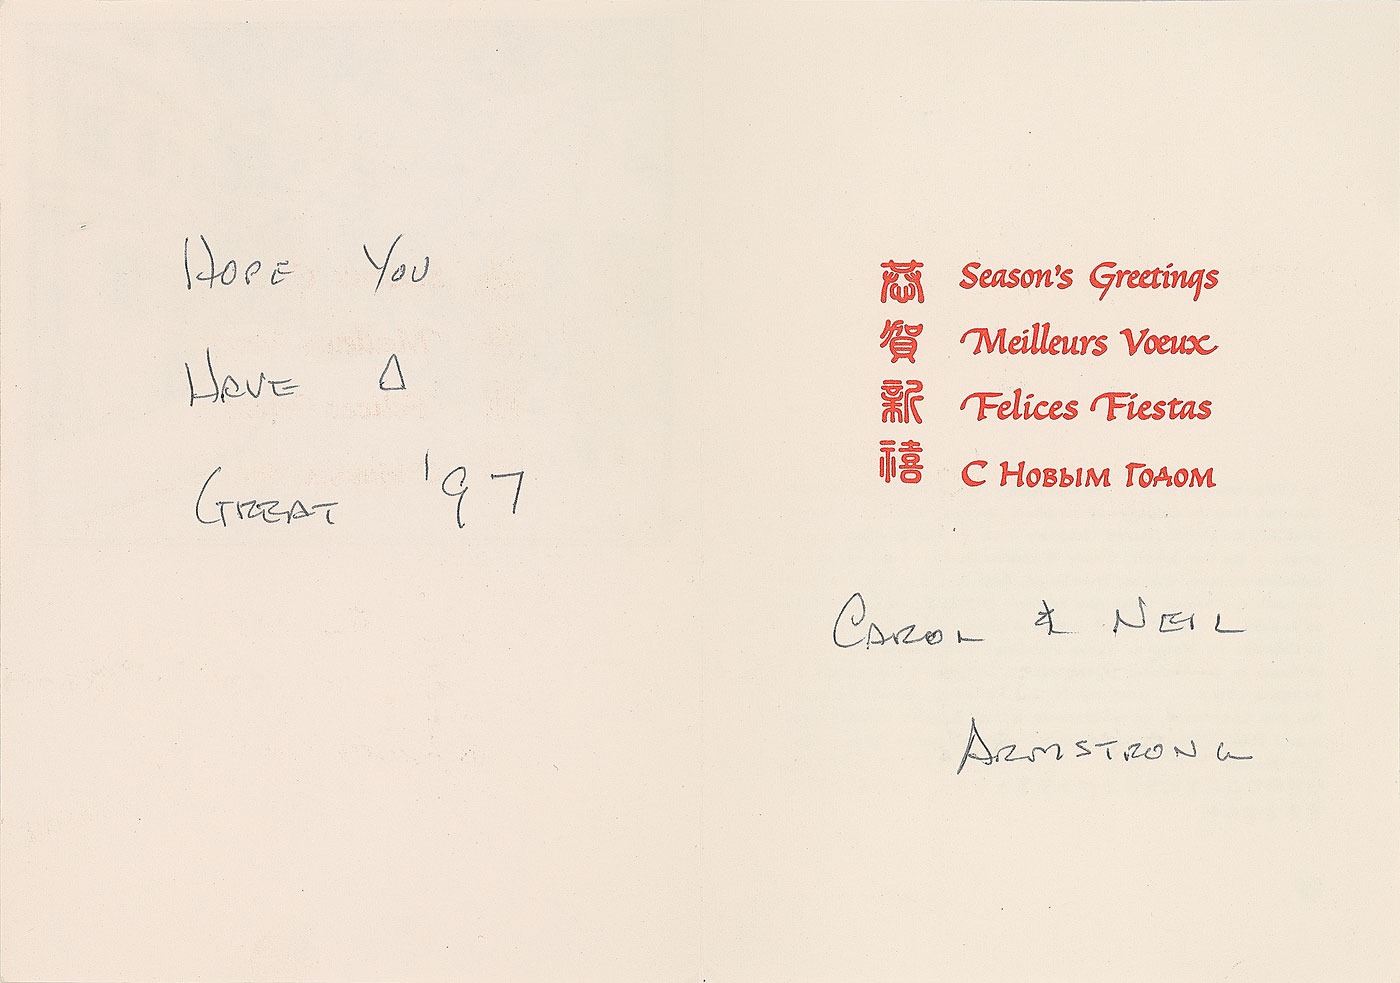 Hope You
Have A
Great '97
恭賀新禧
Season's Greetings
Meilleurs Vœux
Felices Fiestas
С Новым Годом
Carol & Neil
Armstrong